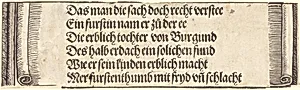 Das man die sach doch recht verstee
Ein furstin nam er zů der ee
Die erblich tochter von Burgund
Des halb erdach ein solichen fund
Wie er sein kinden erblich macht
Mer furstenthumb mit fryd vñ schlacht